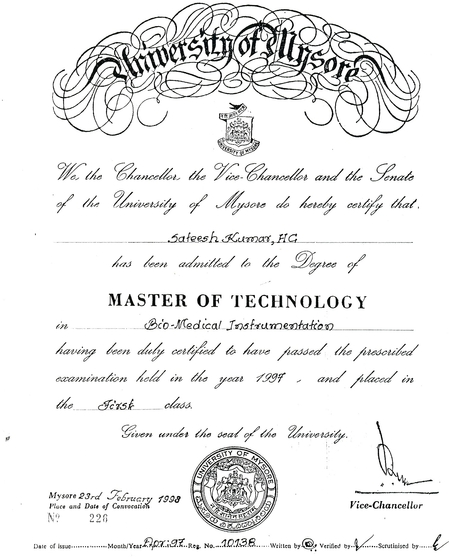 University of Mysore
We, the Chancellor, the Vice-Chancellor and the Senate
of the University of Mysore do hereby certify that
Sateesh Kumar, HG
has been admitted to the Degree of
MASTER OF TECHNOLOGY
in Bio-Medical Instrumentation
having been duly certified to have passed the prescribed
examination held in the year 1997, and placed in
the First class.
Given under the seal of the University.
UNIVERSITY OF MYSORE
Mysore 23rd February 1998
Place and Date of Convocation
Nº 226
Vice-Chancellor
Date of issue Month/Year Apr:97 Reg. No. 10138 Written by Verified by Scrutinised by